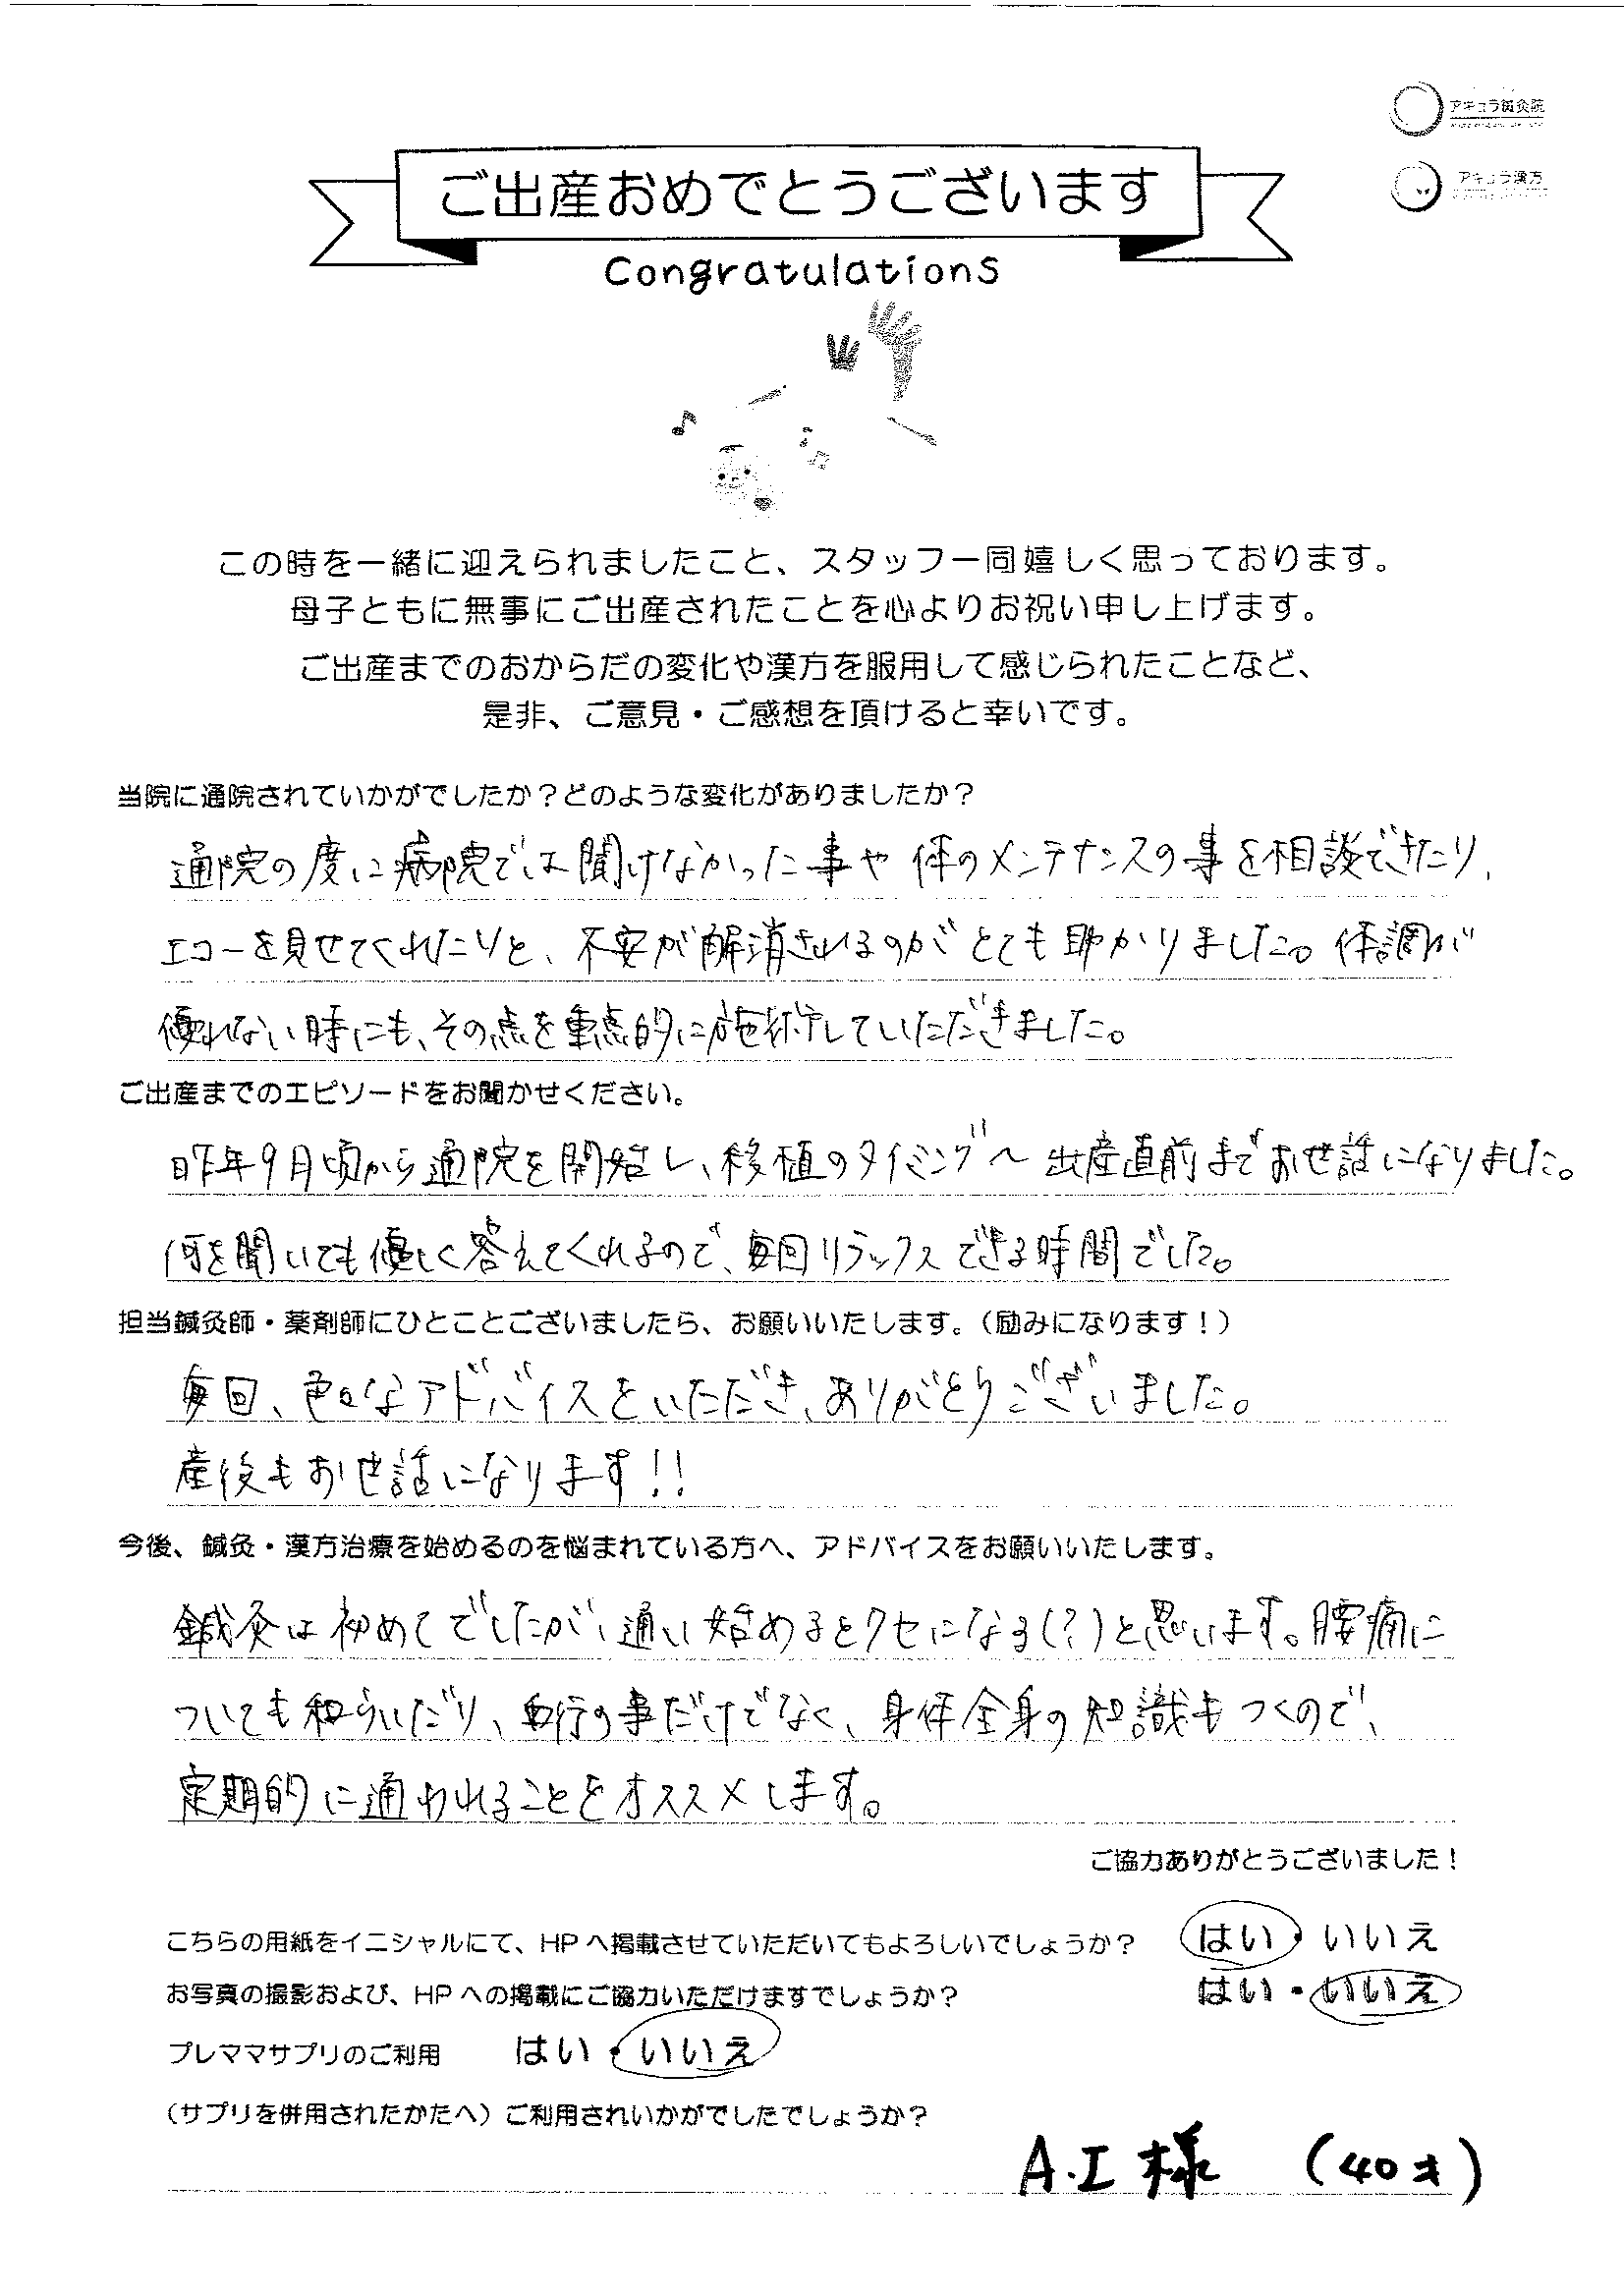 アキュラ鍼灸院
アキュラ漢方
ご出産おめでとうございます
Congratulations
この時を一緒に迎えられましたこと、スタッフ一同嬉しく思っております。
母子ともに無事にご出産されたことを心よりお祝い申し上げます。
ご出産までのおからだの変化や漢方を服用して感じられたことなど、
是非、ご意見・ご感想を頂けると幸いです。
当院に通院されていかがでしたか？どのような変化がありましたか？
通院の度に病院では聞けなかった事や体のメンテナンスの事を相談できたり、
エコーを見せてくれたりと、不安が解消されるのがとても助かりました。体調が
優れない時にも、その点を重点的に施術していただきました。
ご出産までのエピソードをお聞かせください。
昨年9月頃から通院を開始し、移植のタイミング〜出産直前までお世話になりました。
何を聞いても優しく答えてくれるので、毎回リラックスできる時間でした。
担当鍼灸師・薬剤師にひとことございましたら、お願いいたします。（励みになります！）
毎回、色々なアドバイスをいただき、ありがとうございました。
産後もお世話になります!!
今後、鍼灸・漢方治療を始めるのを悩まれている方へ、アドバイスをお願いいたします。
鍼灸は初めてでしたが、通い始めるとクセになる(?)と思います。腰痛に
ついても和らいだり、血行の事だけでなく、身体全身の知識もつくので、
定期的に通われることをオススメします。
ご協力ありがとうございました！
こちらの用紙をイニシャルにて、HPへ掲載させていただいてもよろしいでしょうか？ はい・いいえ
お写真の撮影および、HPへの掲載にご協力いただけますでしょうか？ はい・いいえ
プレママサプリのご利用 はい・いいえ
（サプリを併用されたかたへ）ご利用されいかがでしたでしょうか？
A.I様 (40才)